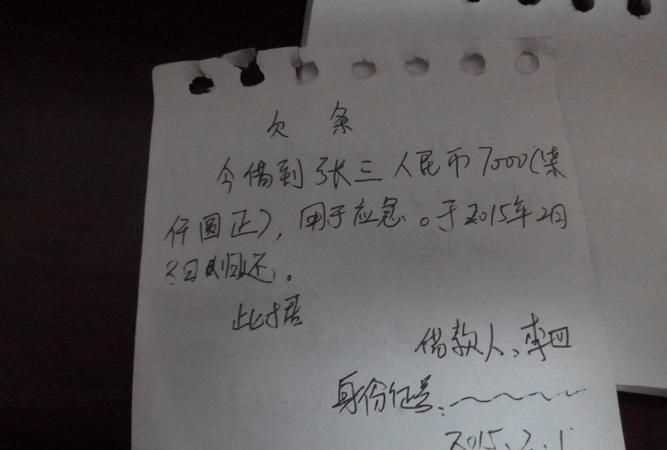 欠条
今借到张三人民币7000(柒
仟圆正),用于应急。于2015年2月
日归还。
此据
借款人:李四
身份证号:
2015.2.1